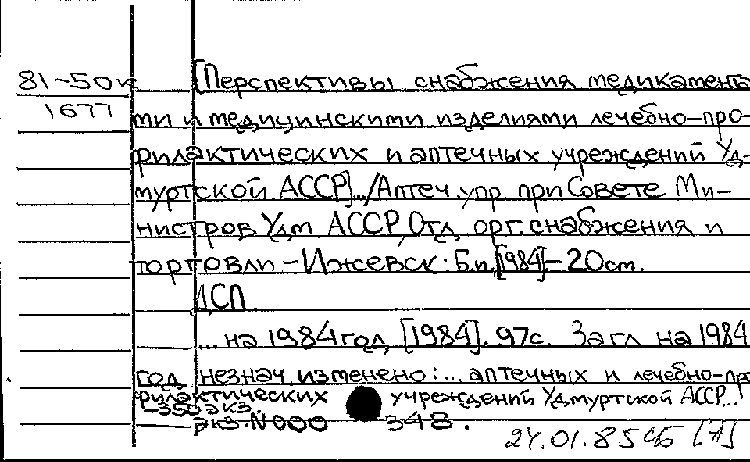 81-50к [Перспективы снабжения медикамента
1677 ми и медицинскими изделиями лечебно-про-
филактических и аптечных учреждений Уд-
муртской АССР].../Аптеч. упр. при Совете Ми-
нистров Удм АССР, Отд. орг. снабжения и
торговли - Ижевск: Б.и., [1984] - 20см.
ДСП
... на 1984 год, [1984]. 97с. Загл на 1984
год незнач. изменено: ... аптечных и лечебно-пр
филактических учреждений Удмуртской АССР...
350 экз
экз. N000 348.
24.01.85 [А]